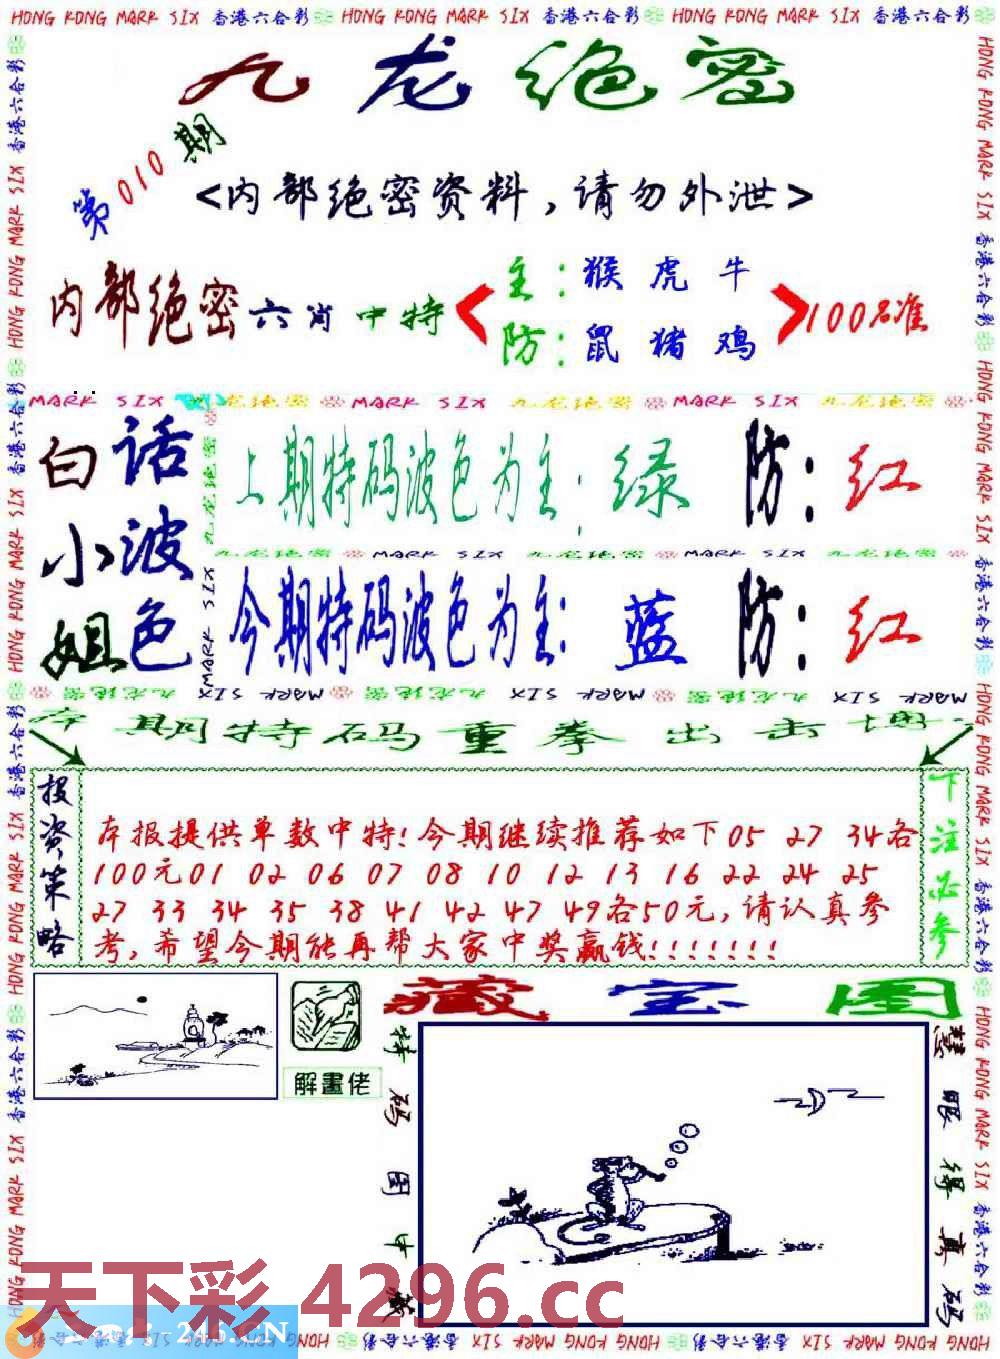 HONG KONG MARK SIX 香港六合彩 HONG KONG MARK SIX 香港六合彩 HONG KONG MARK SIX 香港六合彩
九龙绝密
第010期
<内部绝密资料,请勿外泄>
内部绝密六肖中特
主:猴 虎 牛
防:鼠 猪 鸡
100%准
MARK SIX 九龙绝密 MARK SIX 九龙绝密 MARK SIX 九龙绝密
白小姐
话波色
上期特码波色为主:绿 防:红
九龙绝密 MARK SIX 九龙绝密 MARK SIX 九龙绝密
今期特码波色为主:蓝 防:红
本期特码重拳出击
投资策略
本报提供单数中特!今期继续推荐如下05 27 34各
100元01 02 06 07 08 10 12 13 16 22 24 25
27 33 34 35 38 41 42 47 49各50元,请认真参
考,希望今期能再帮大家中奖赢钱!!!!!!!
下注必参
解畫佬
藏宝图
特码图中
慧眼得真码
天下彩 4296.cc
246.CN